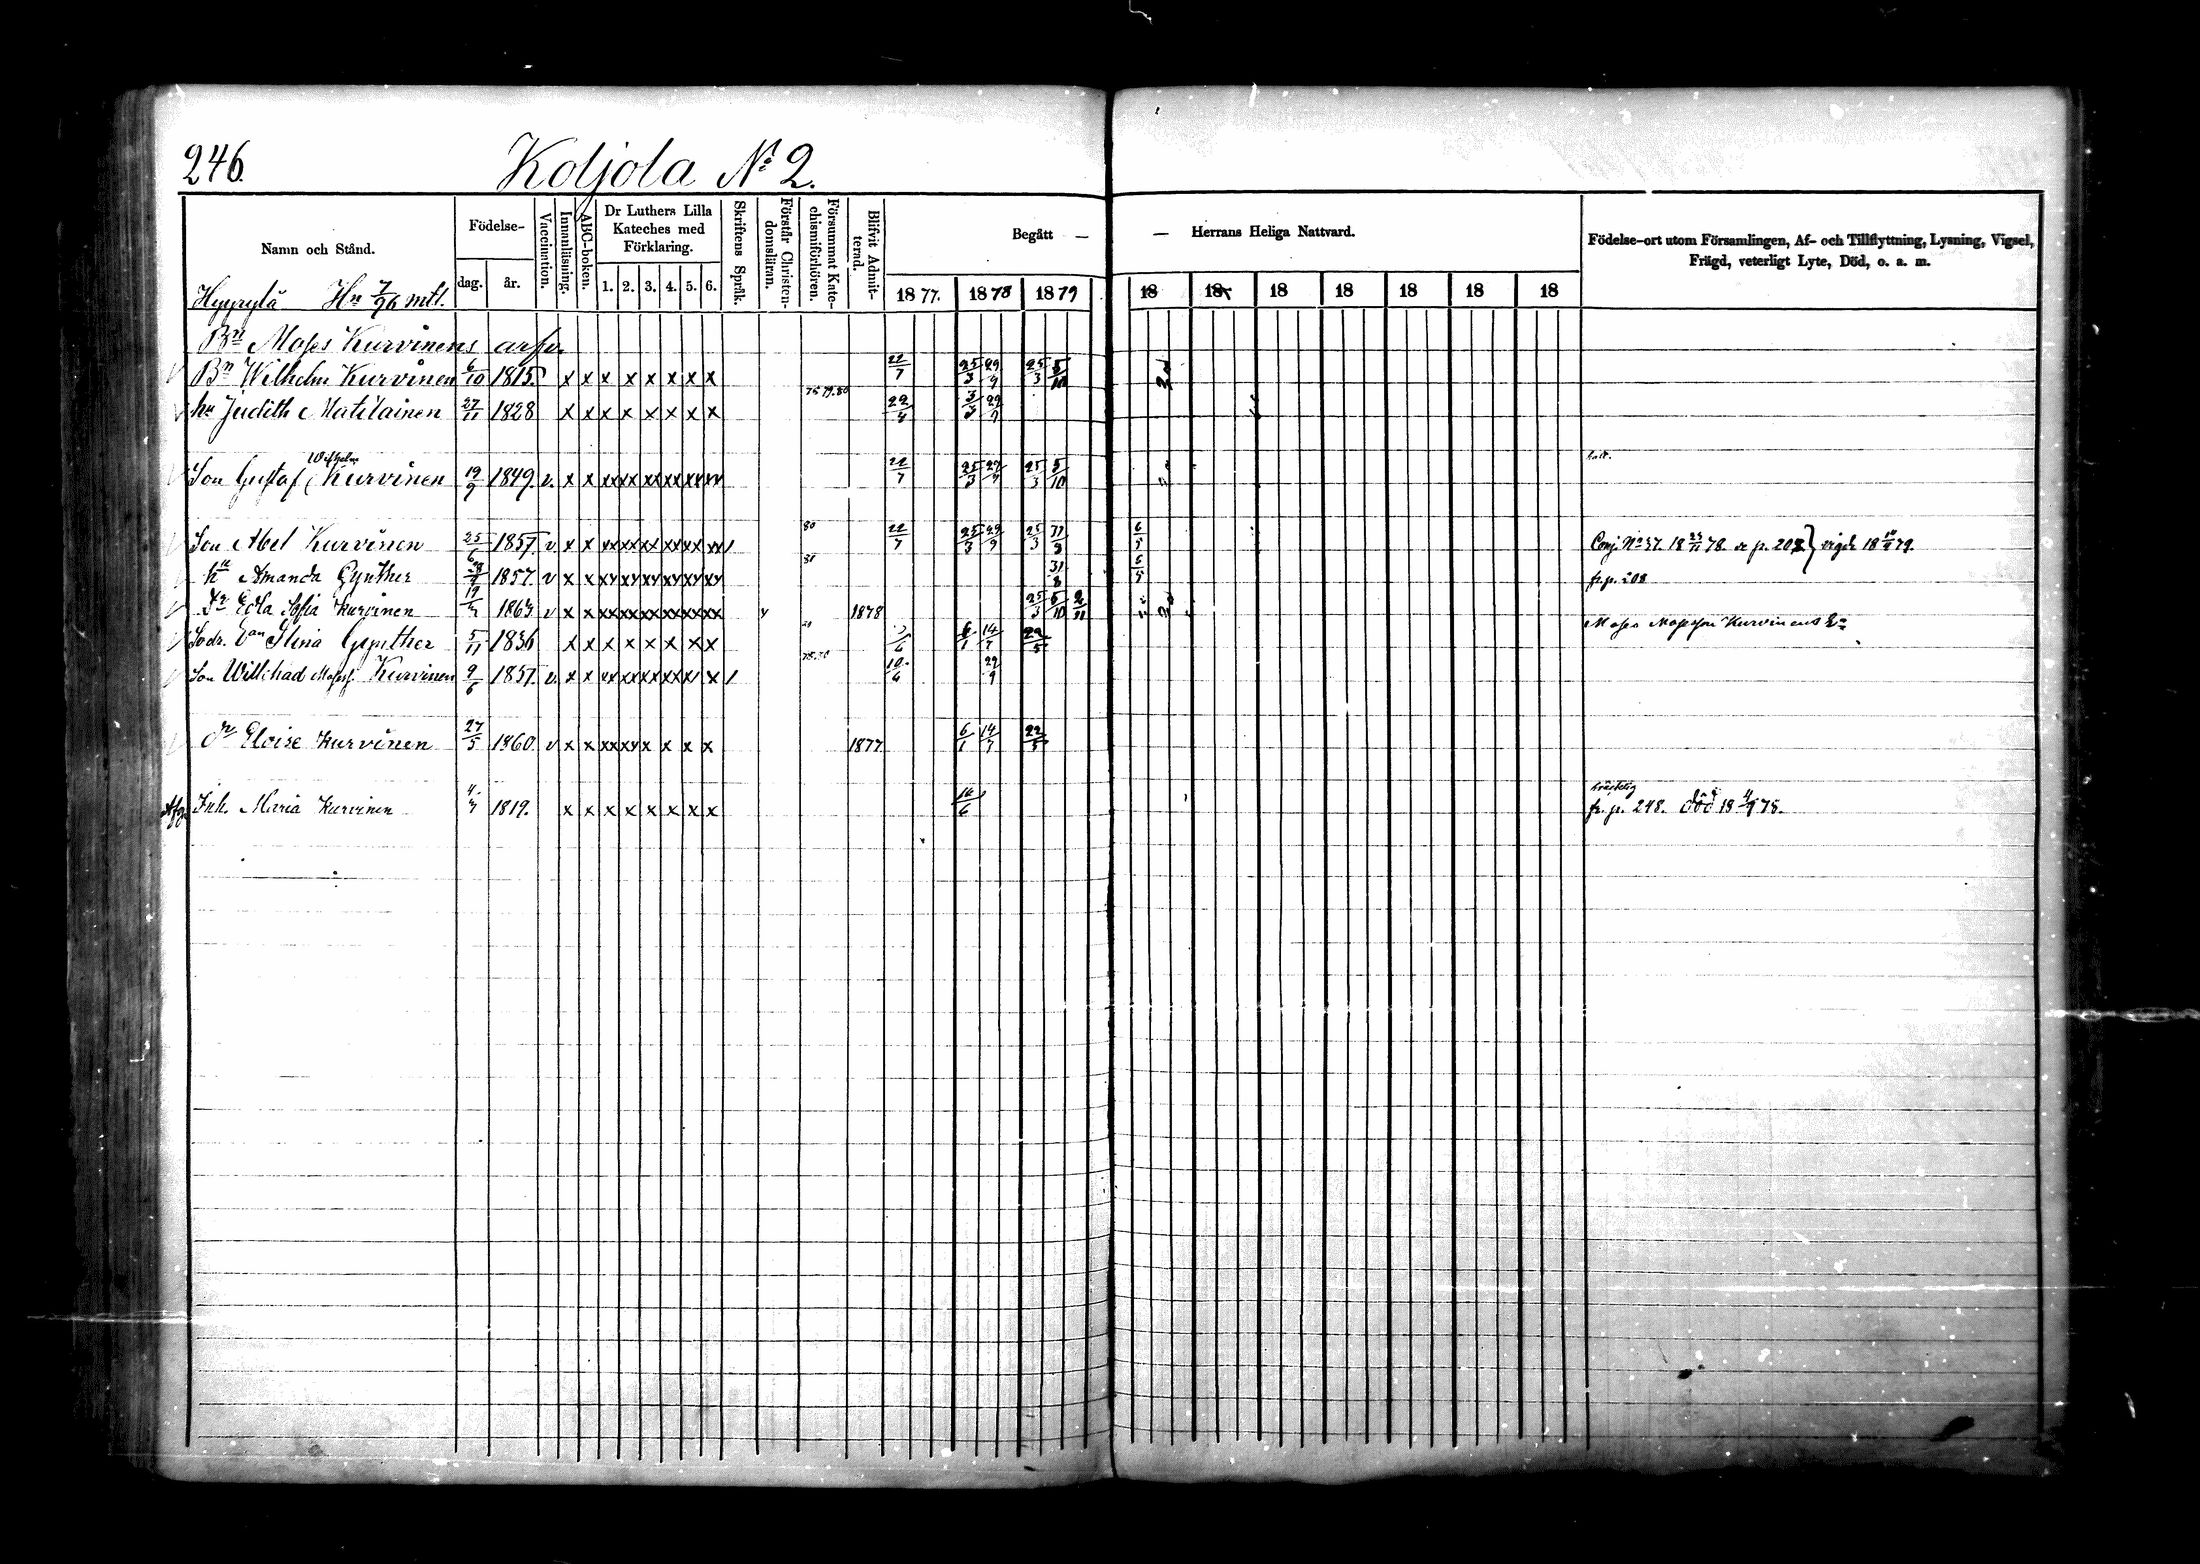 246.
Koljola No 2.
Namn och Stånd.
Födelse-
dag.
år.
Vaccination.
Innanläsning.
ABC-boken.
Dr Luthers Lilla
Kateches med
Förklaring.
1. 2. 3. 4. 5. 6.
Skriftens Språk.
Förstår Christen-
domsläran.
Försummat Kate-
chismiförhören.
Blifvit Admit-
terad.
Begått —
— Herrans Heliga Nattvard.
1877. 1878 1879
18 18 18 18 18 18 18
Födelse-ort utom Församlingen, Af- och Tillflyttning, Lysning, Vigsel,
Frägd, veterligt Lyte, Död, o. a. m.
Hyyrylä Hn 7/96 mtl.
Bn Moses Kurvinens arfv.
Bn Wilhelm Kurvinen 6/10 1815. x x x x x x x x 22/7 25/3 29/9 25/3 5/10
hu Judith Matilainen 27/11 1828 x x x x x x x x 3/3 29/9
Son Gustaf Wilhelm Kurvinen 19/9 1849. v. x x xx xx xx xx xx xx 22/7 25/3 29/9 25/3 5/10
Son Abel Kurvinen 25/6 1857 v x x xx xx xx xx xx xx 80 22/7 25/3 29/9 25/3 6/5 Conj. No 37. 18 78. p. 208 vigde 18 79.
hu Amanda Gynther 1857. v x x xx xx xx xx xx xx 31/8 6/5 fr. p. 208
Dr Edla Sofia Kurvinen 1863 v x x xx xx xx xx xx xx 1878 25/3 5/10
Sodr. Ean Stina Gynther 5/11 1836 x x x x x x x x 6/1 14/7 22/5 Moses Mosesson Kurvinens Ea
Son Willehad Mosess. Kurvinen 9/6 1857. v. x x xx xx xx xx xx x 10/6 29/9
Dr Eloise Kurvinen 27/5 1860. v x x xx xx x x x x 1877 6/1 14/7 22/5
Inh. Maria Kurvinen 1819. x x x x x x x x fr. p. 248. död 18 78.